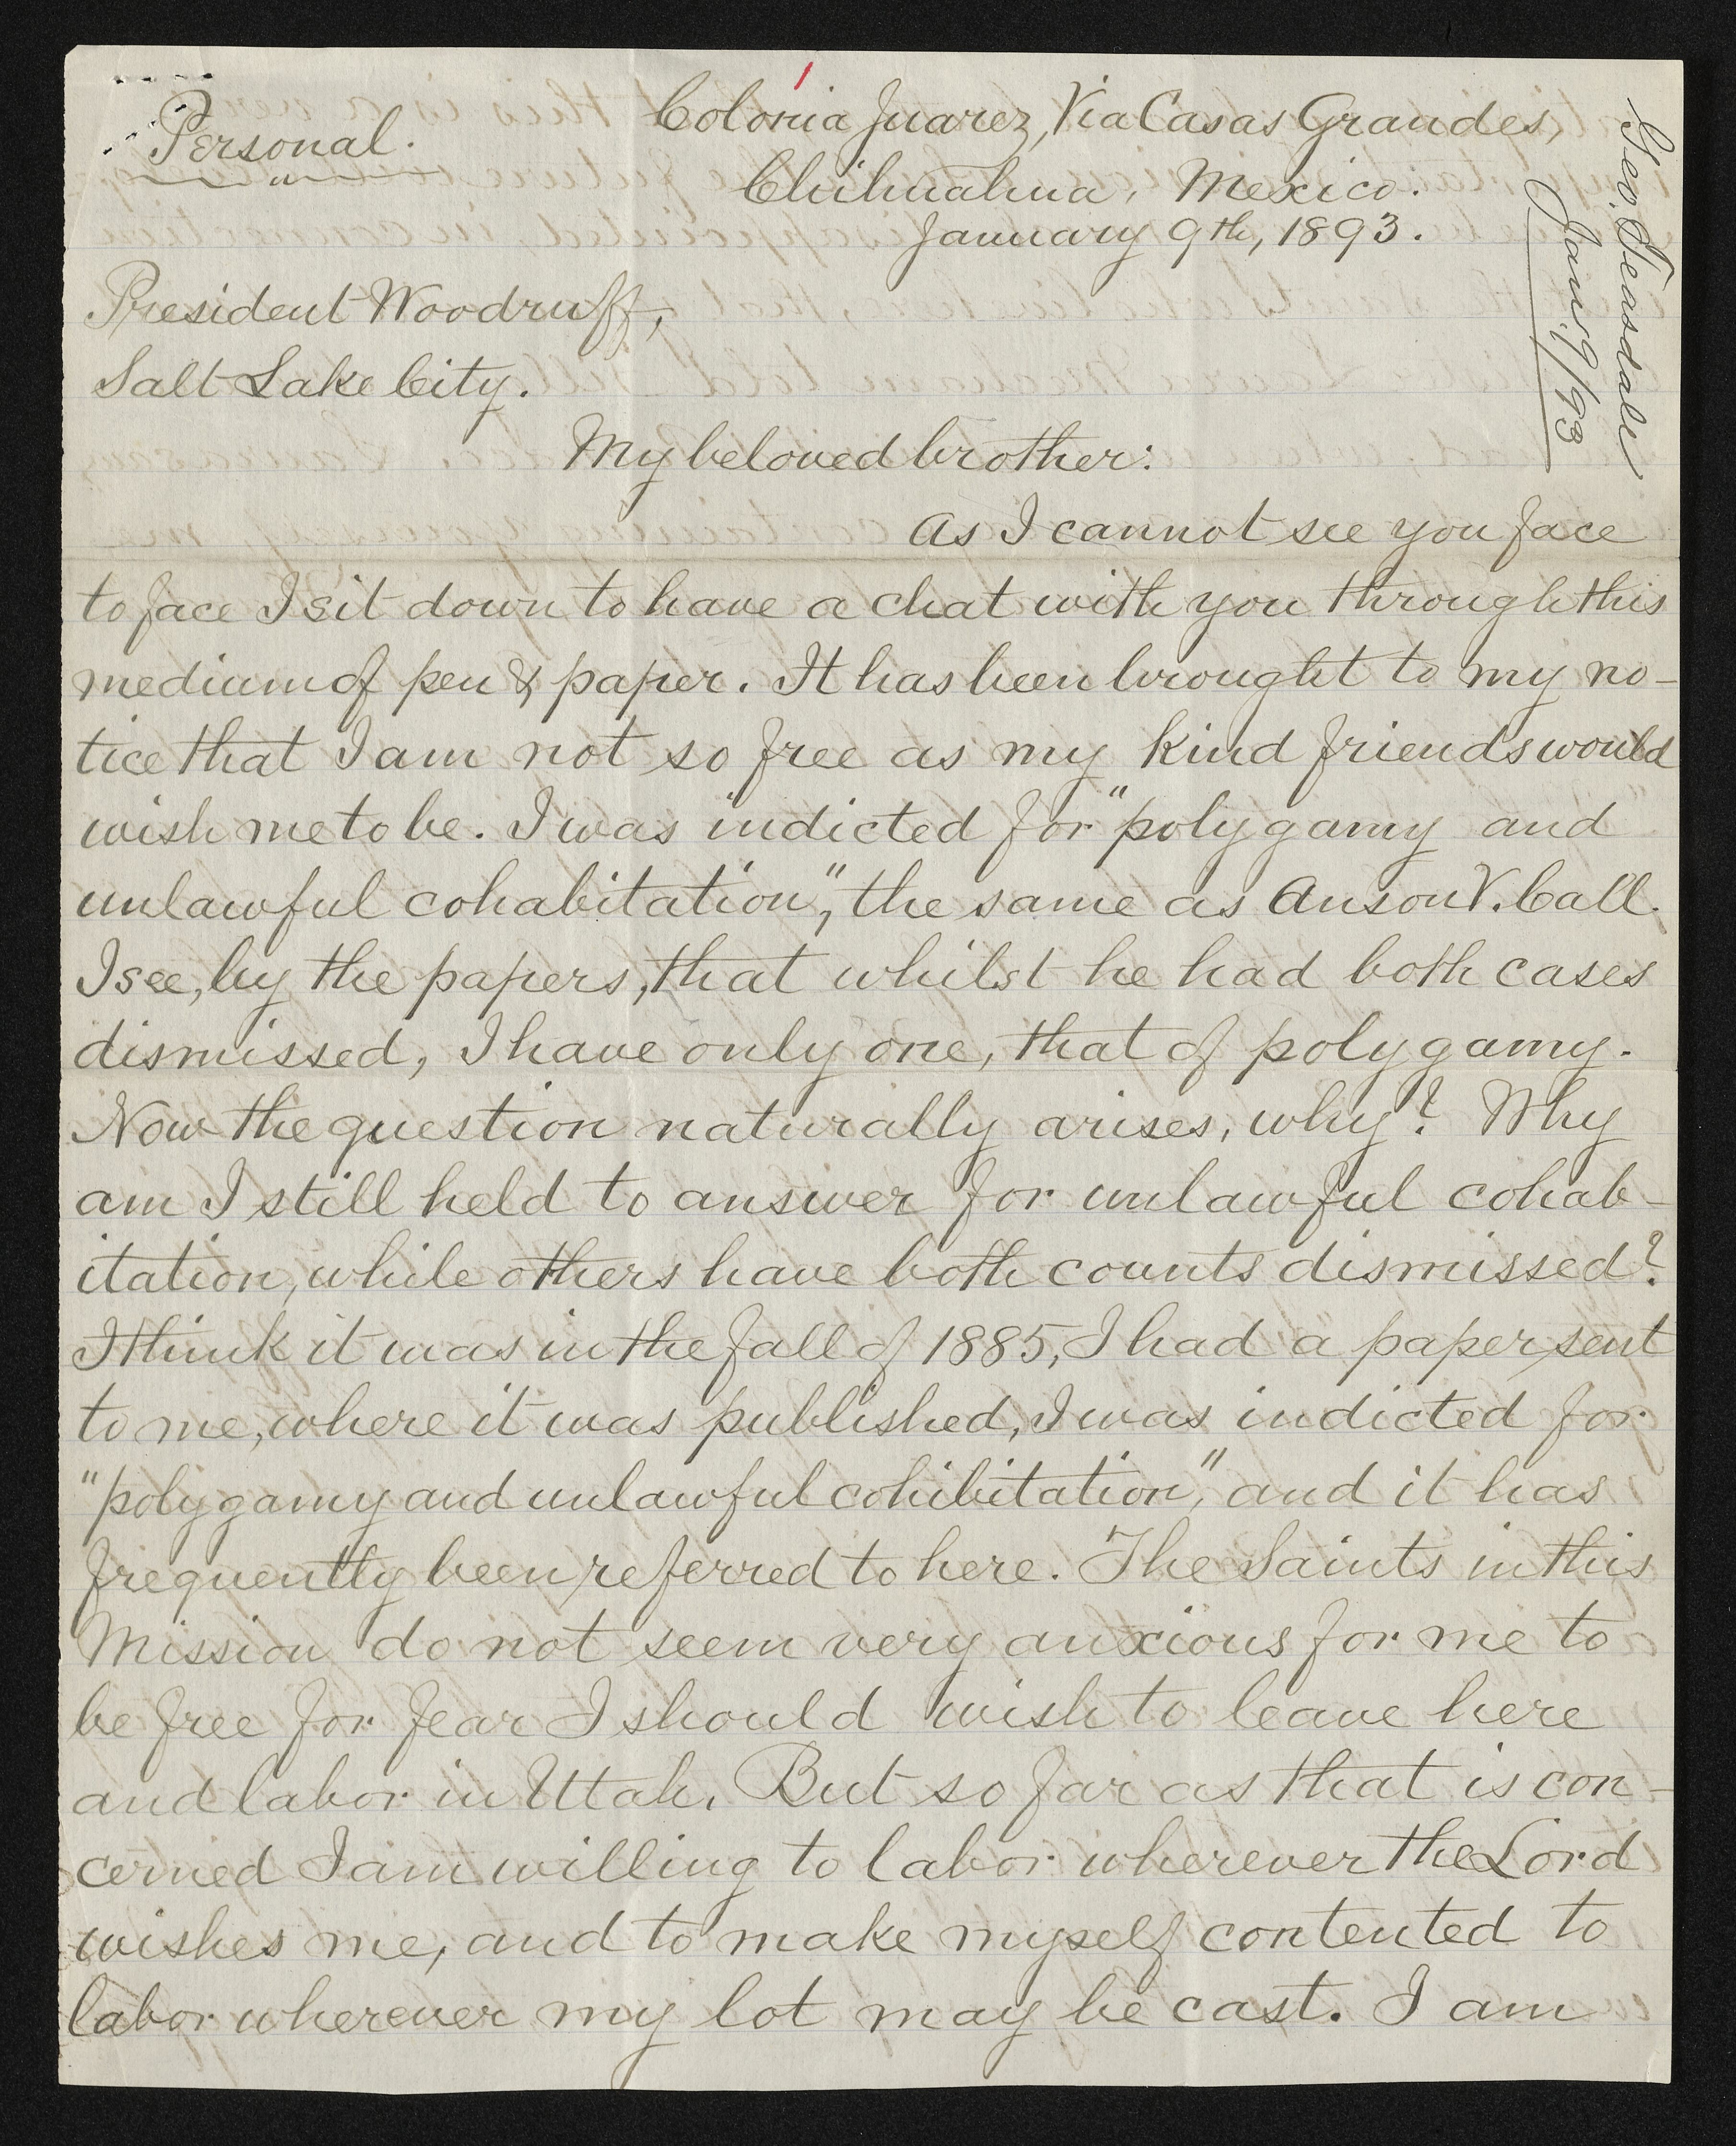 Personal.
Colonia Juarez, Via Casas Grandes,
Chihuahua, Mexico.
January 9th, 1893.
Geo. Teasdale
Jan. 9/93
President Woodruff,
Salt Lake City.
My beloved brother:
As I cannot see you face
to face I sit down to have a chat with you through this
medium of pen & paper. It has been brought to my no-
tice that I am not so free as my kind friends would
wish me to be. I was indicted for "polygamy and
unlawful cohabitation", the same as Anson V. Call.
I see, by the papers, that whilst he had both cases
dismissed, I have only one, that of polygamy.
Now the question naturally arises, why? Why
am I still held to answer for unlawful cohab-
itation, while others have both counts dismissed?
I think it was in the fall of 1885, I had a paper sent
to me, where it was published, I was indicted for
"polygamy and unlawful cohibitation", and it has
frequently been referred to here. The Saints in this
Mission do not seem very anxious for me to
be free for fear I should wish to leave here
and labor in Utah. But so far as that is con-
cerned I am willing to labor wherever the Lord
wishes me, and to make myself contented to
labor wherever my lot may be cast. I am